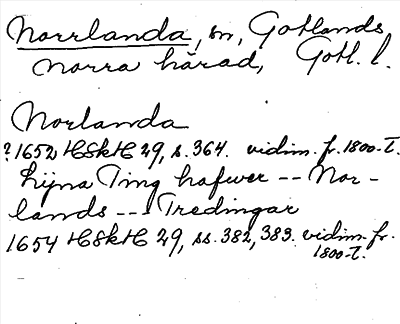 Norrlanda, sn, Gotlands
norra härad, Gotl. l.
Norlanda
?1652 HSkH 29, s. 364. vidim. fr. 1800-t.
Lijna Ting hafwer -- Nor-
lands --- Tredingar
1654 HSkH 29, ss. 382, 383. vidim. fr.
1800-t.